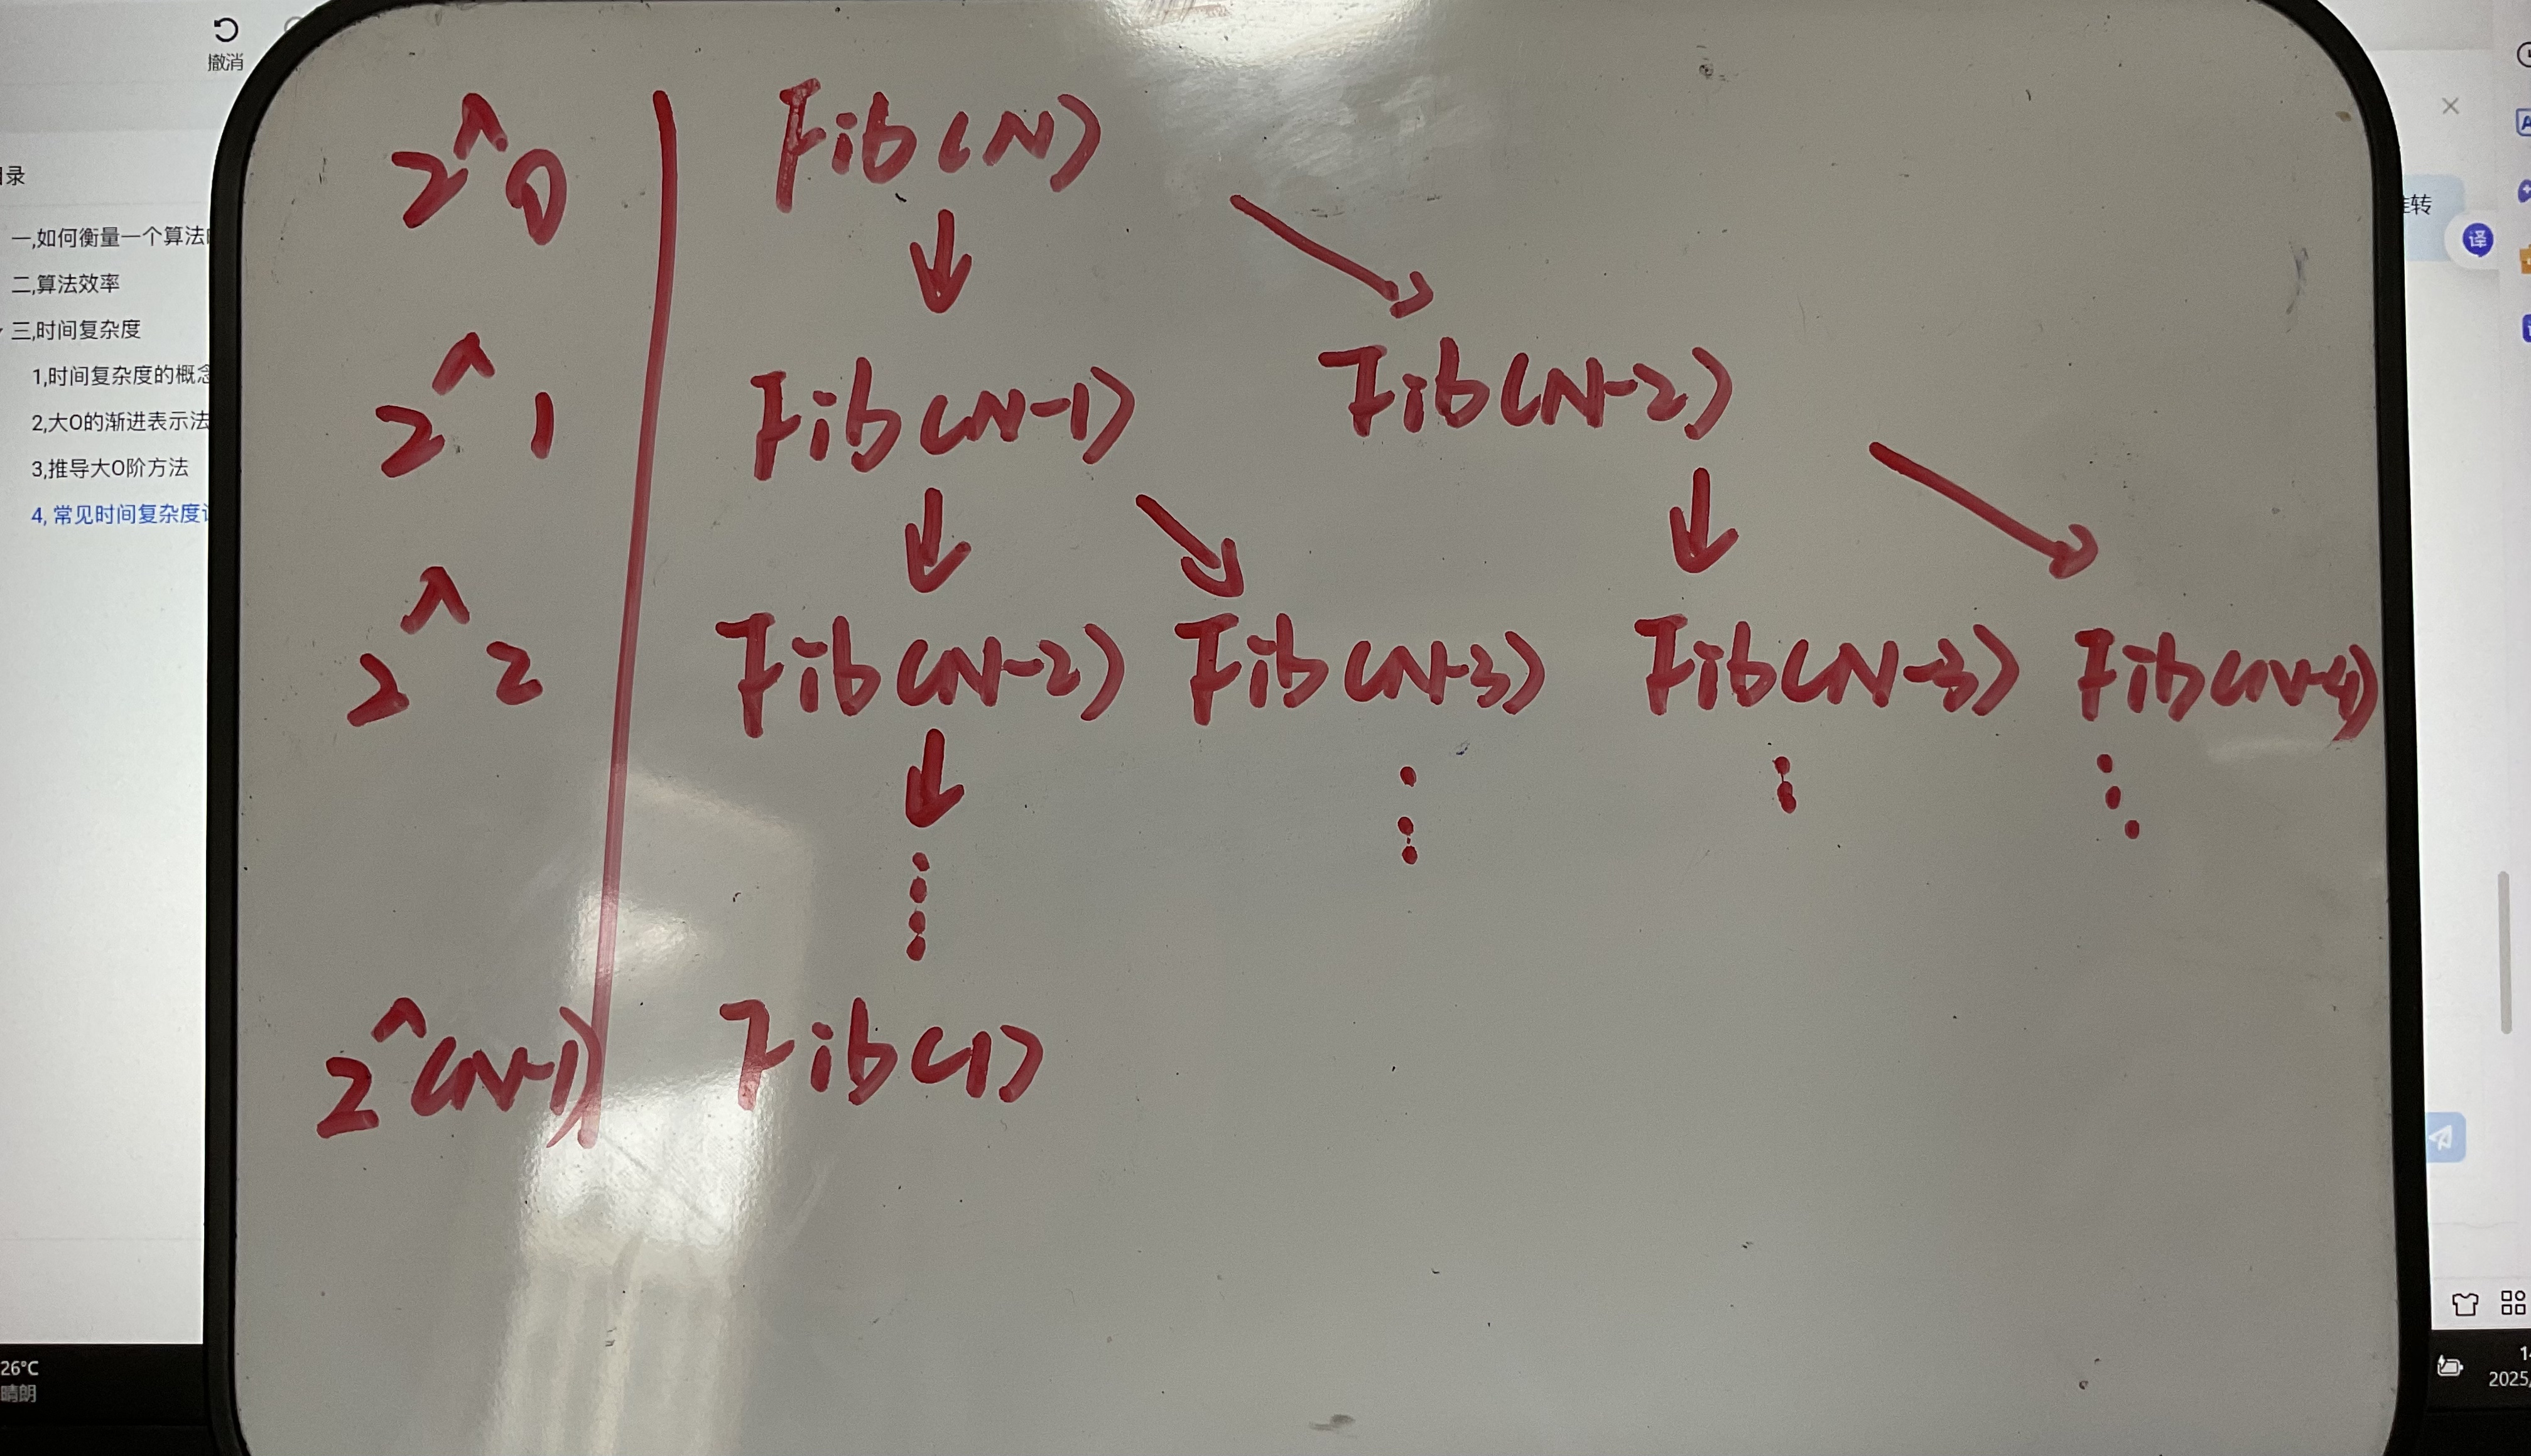 撤消
2^0 Fib(N)
录
一,如何衡量一个算法
二,算法效率
三,时间复杂度
1,时间复杂度的概念
2,大O的渐进表示法
3,推导大O阶方法
4, 常见时间复杂度
转
译
2^1 Fib(N-1) Fib(N-2)
2^2 Fib(N-2) Fib(N-3) Fib(N-3) Fib(N-4)
2^(N-1) Fib(1)
26°C
晴朗
2025